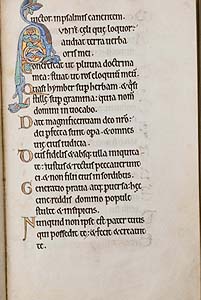 uctor. in psalmis canentem.
Audite celi que loquor:
audiat terra verba
oris mei.
Concrescat ut pluvia doctrina
mea: fluat ut ros eloquiu meu.
Quasi hymber sup herbam. et quasi
stille sup gramina: quia nom
domini invocabo.
Date magnificentiam deo nro:
dei pfecta sunt opa. et omnes
vie eius iudicia.
Deus fidelis et absq; ulla iniquita
te: iustus et rectus peccaverunt
ei et non filii eius in sordibus.
Generatio prava atq; pversa: hec
cine reddis domino popule
stulte et insipiens.
Nunquid non ipse est pater tuus
qui possedit te: et fecit et creavit
te.